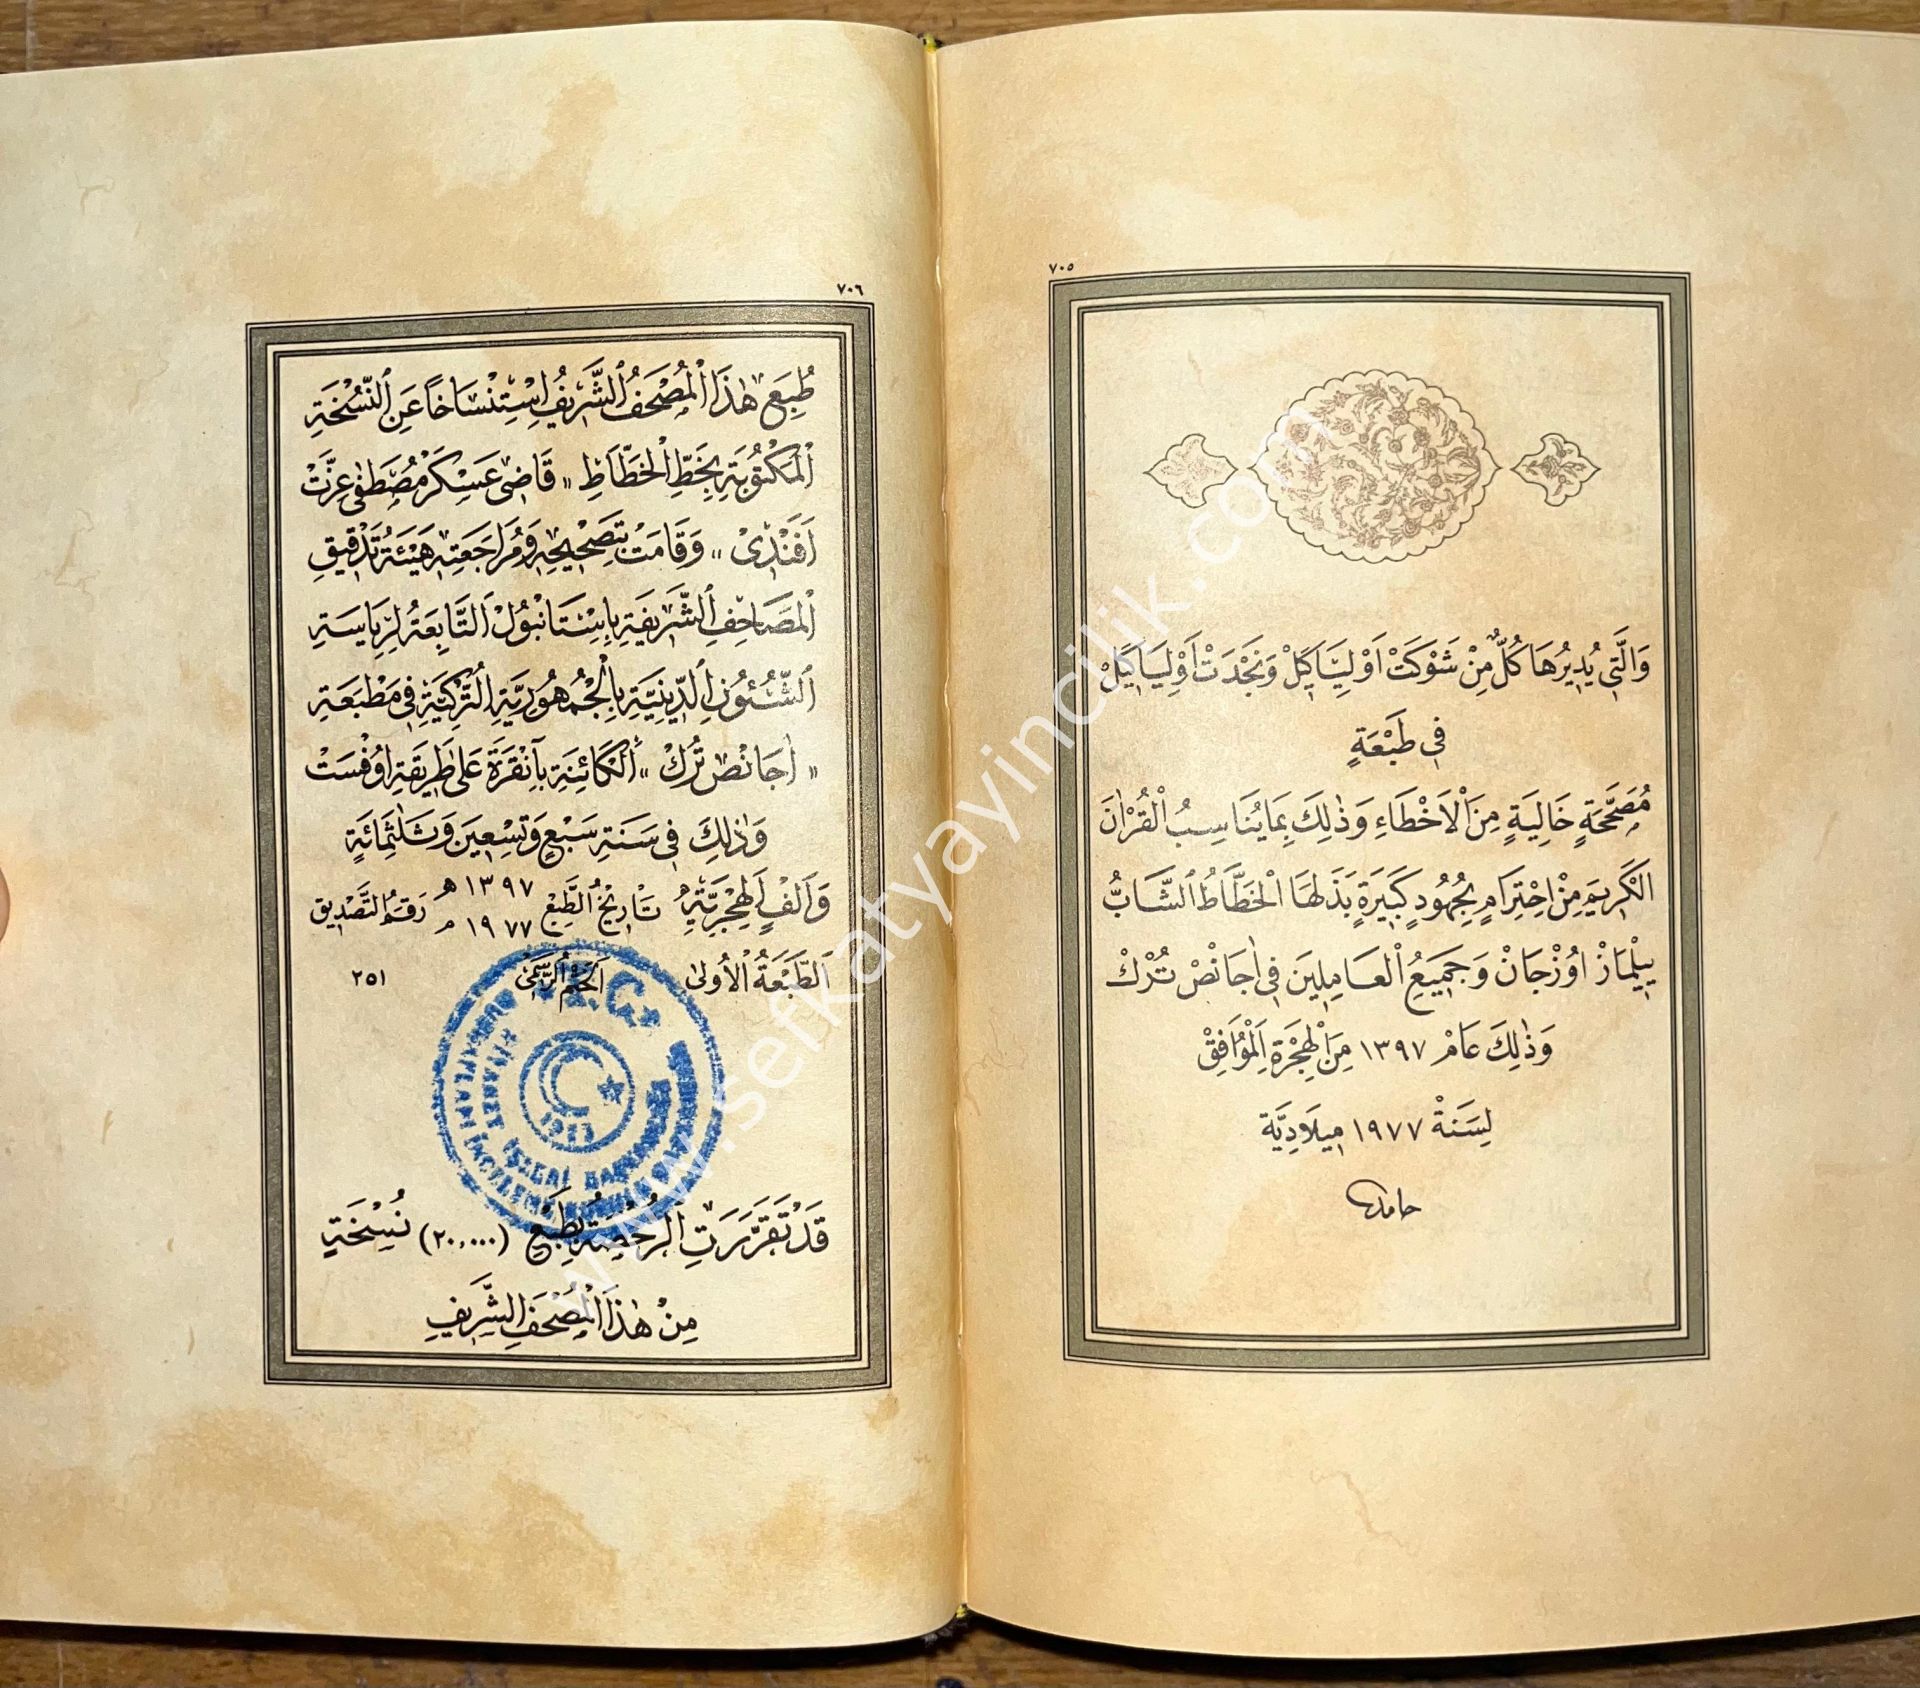 ٧٠٥
وَالَّتِي يُدِيرُهَا كُلٌّ مِنْ شَوْكَتْ اَوْلِيَاكِلْ وَنَجْدَتْ اَوْلِيَاكِلْ
فِي طَبْعَةٍ
مُصَحَّحَةٍ خَالِيَةٍ مِنَ الْاَخْطَاءِ وَذٰلِكَ بِمَا يُنَاسِبُ الْقُرْاٰنَ
الْكَرِيمَ مِنْ اِحْتِرَامٍ بِجُهُودٍ كَبِيرَةٍ بَذَلَهَا الْخَطَّاطُ الشَّابُّ
يِيلْمَازْ اوُزْجَانْ وَجَمِيعِ الْعَامِلِينَ فِي اَجَانْصْ تُرْكْ
وَذٰلِكَ عَامْ ١٣٩٧ مِنَ الْهِجْرَةِ الْمُوَافِقْ
لِسَنَةْ ١٩٧٧ مِيلَادِيَّة
حامد
٧٠٦
طُبِعَ هٰذَا الْمُصْحَفُ الشَّرِيفُ اِسْتِنْسَاخًا عَنِ النُّسْخَةِ
الْمَكْتُوبَةِ بِخَطِّ الْخَطَّاطِ " قَاضِي عَسْكَرْ مُصْطَفٰى عِزَّتْ
اَفَنْدِيْ " وَقَامَتْ بِتَصْحِيحِهِ وَمُرَاجَعَتِهِ هَيْئَةُ تَدْقِيقِ
الْمَصَاحِفِ الشَّرِيفَةِ بِاِسْتَانْبُولْ التَّابِعَةُ لِرِيَاسَةِ
الشُّئُونِ الدِّينِيَّةِ بِالْجُمْهُورِيَّةِ التُّرْكِيَّةِ فِي مَطْبَعَةِ
" اَجَانْصْ تُرْكْ " الْكَائِنَةِ بِاَنْقَرَةَ عَلٰى طَرِيقَةِ اوُفْسَتْ
وَذٰلِكَ فِي سَنَةِ سَبْعٍ وَتِسْعِينَ وَثَلٰثِمِائَةٍ
وَاَلْفٍ الْهِجْرِيَّةِ تَارِيْخُ الطَّبْعِ ١٣٩٧ هـ ١٩٧٧ م رَقَمُ التَّصْدِيقِ
اَلطَّبْعَةُ الْأُولٰى الْخَتْمُ الرَّسْمِيُّ ٢٥١
T.C.
DİYANET İŞLERİ BAŞKANLIĞI
1923
قَدْ تَقَرَّرَتِ الرُّخْصَةُ بِطَبْعِ (٢٠,٠٠٠) نُسْخَةٍ
مِنْ هٰذَا الْمُصْحَفِ الشَّرِيفِ
www.sefkatyayincilik.com